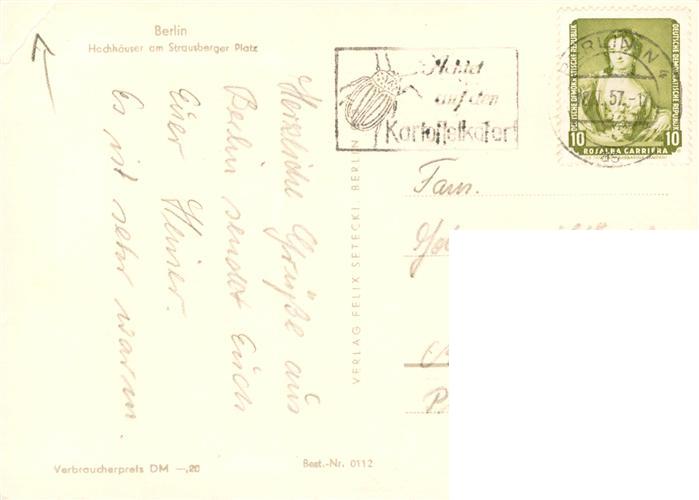 Berlin
Hochhäuser am Strausberger Platz
Herzliche Grüße aus
Berlin sendet Euch
Euer Heiner.
Es ist sehr warm.
VERLAG FELIX SETECKI, BERLIN
Achtet
auf den
Kartoffelkäfer!
DEUTSCHE DEMOKRATISCHE REPUBLIK
DEUTSCHE DEMOKRATISCHE REPUBLIK
10 ROSALBA CARRIERA 10
BERLIN N
57
Fam.
Verbraucherpreis DM —,20
Best.-Nr. 0112